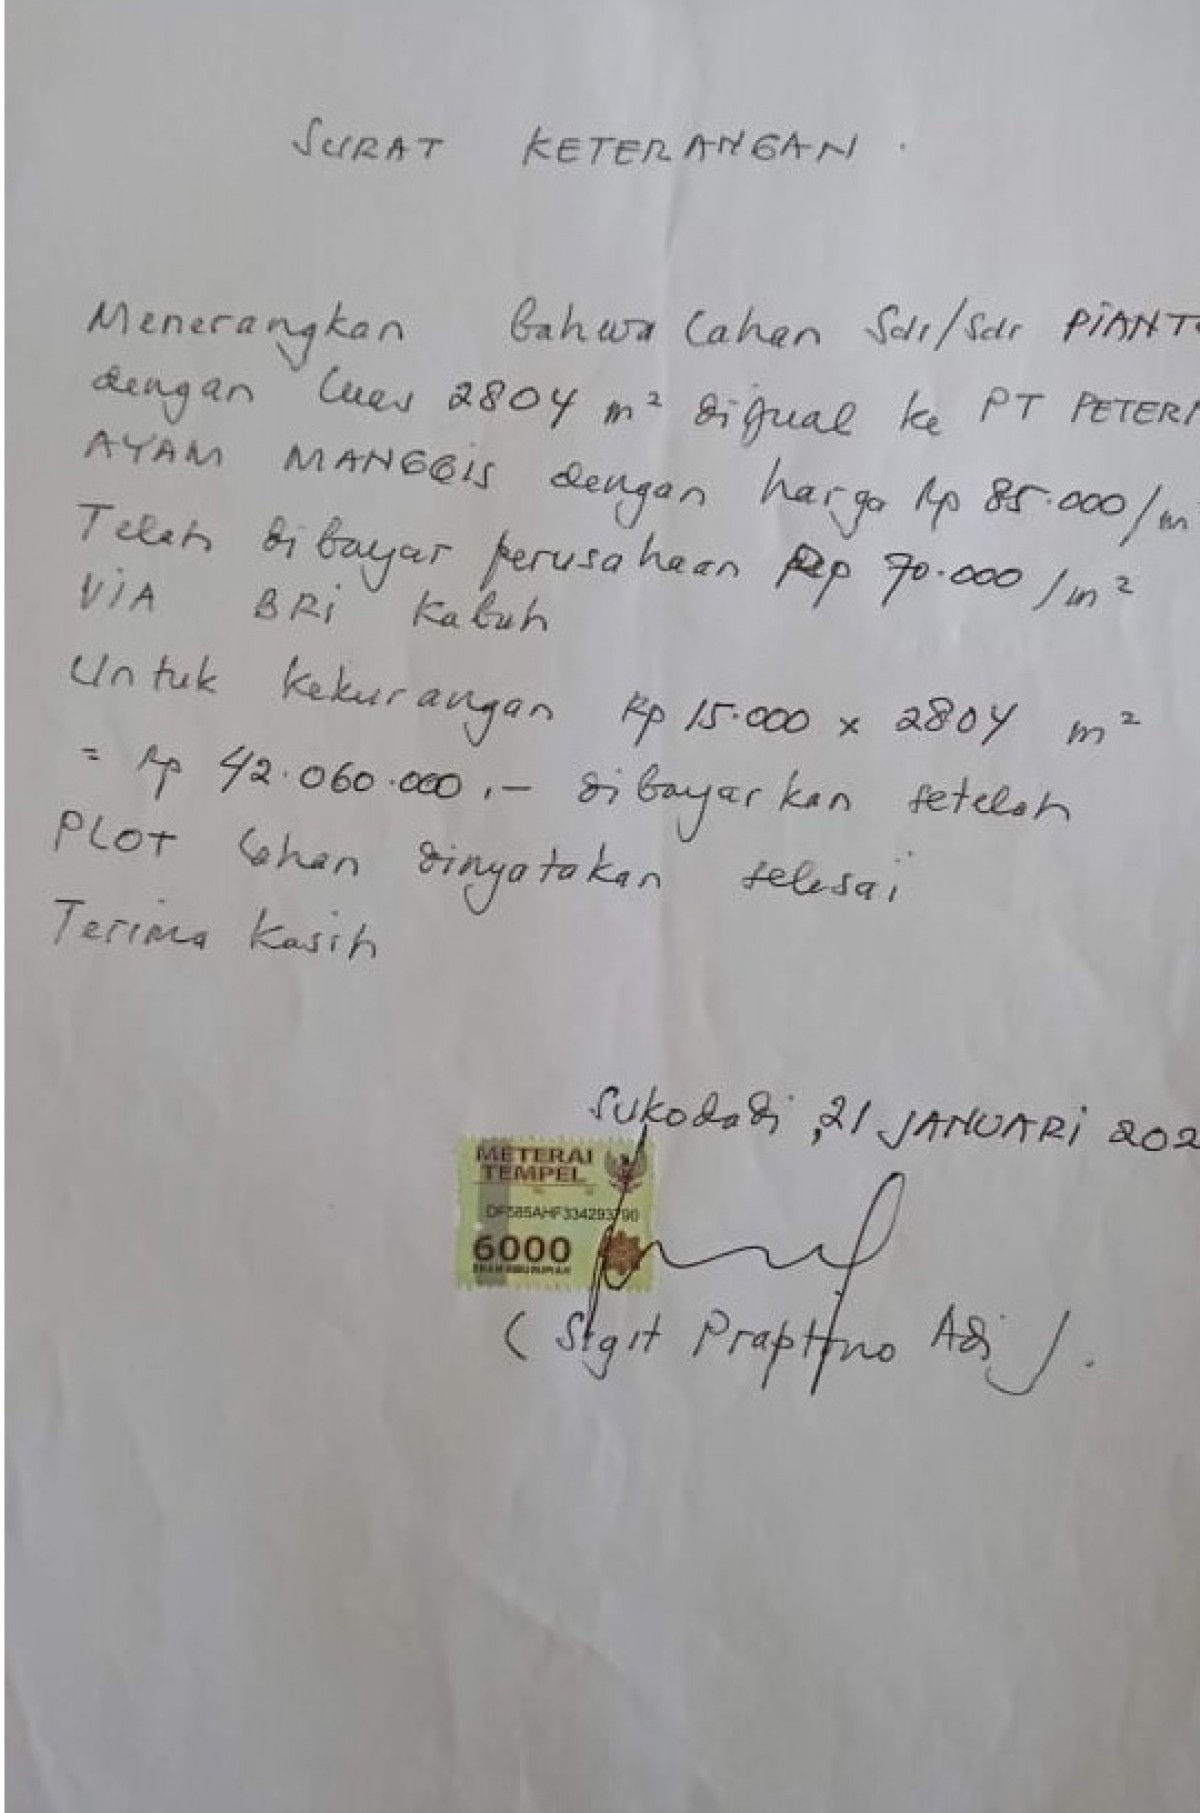 SURAT KETERANGAN.
Menerangkan bahwa Lahan Sdr/Sdr PIANT
dengan luas 2804 m² dijual ke PT PETER
AYAM MANGGIS dengan harga Rp 85.000/m
Telah dibayar perusahaan Rp 70.000/m²
VIA BRI Kabuh
Untuk kekurangan Rp 15.000 x 2804 m²
= Rp 42.060.000,- dibayarkan setelah
PLOT Lahan dinyatakan selesai
Terima Kasih
Sukodadi, 21 JANUARI 202
METERAI
TEMPEL
DF585AHF334293790
6000
ENAM RIBU RUPIAH
(Sigit Praptino Adi).